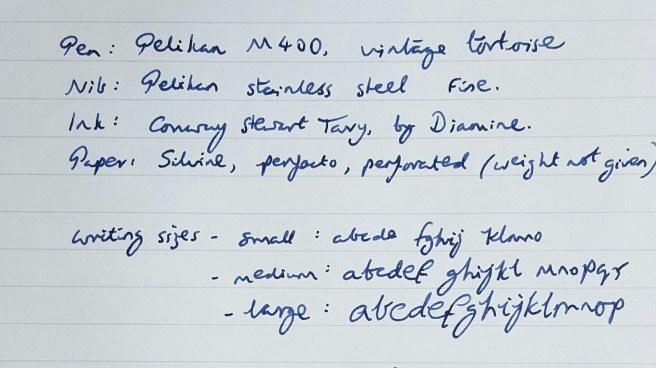 Pen: Pelikan M400, vintage tortoise
Nib: Pelikan stainless steel Fine.
Ink: Conway Stewart Tavy, by Diamine.
Paper: Silvine, perfecto, perforated (weight not given)
writing sizes - small: abcde fghij klmno
- medium: abcdef ghijkl mnopqr
- large: abcdefghijklmnop